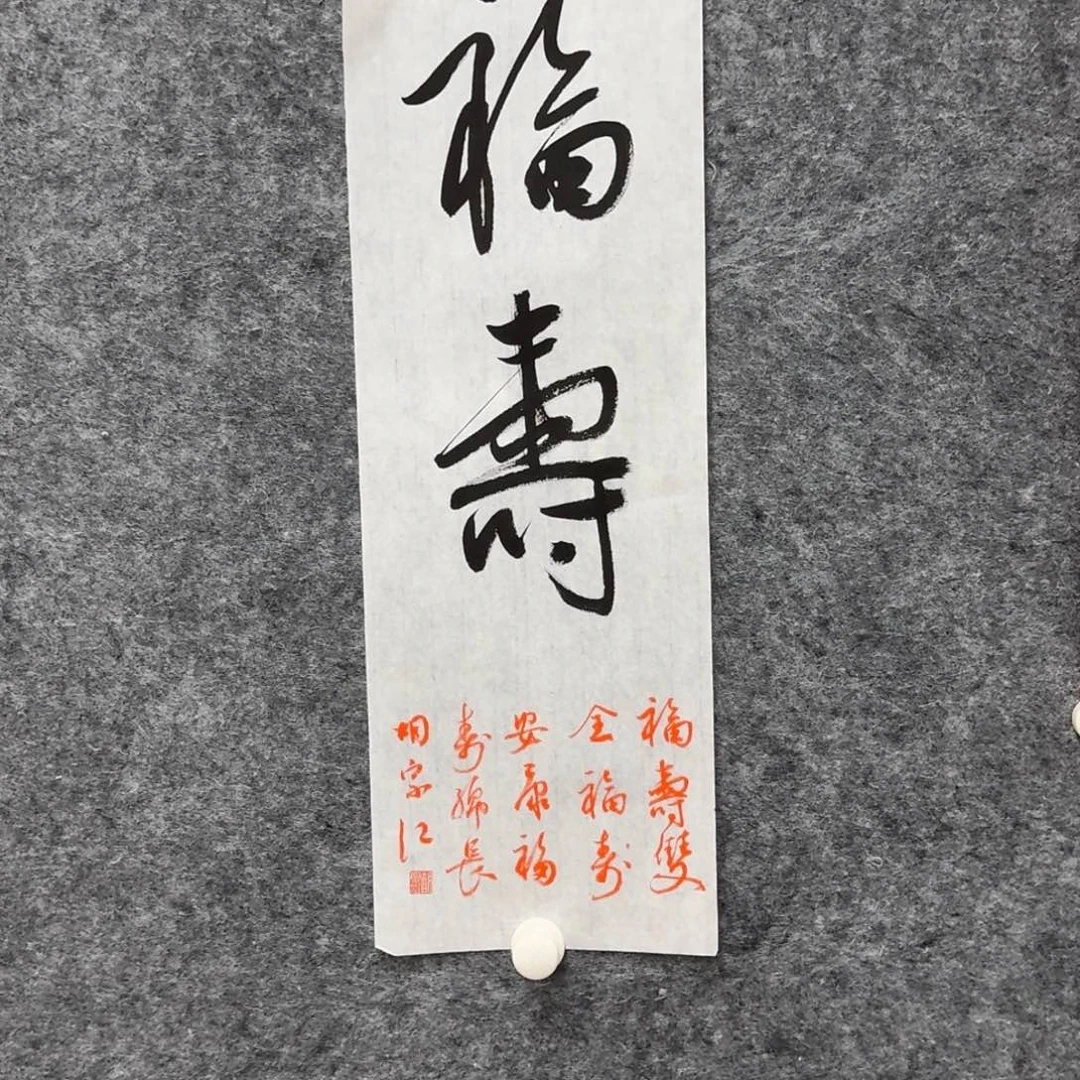 福壽
福壽雙
全福寿
安康福
寿綿長
胡宗江